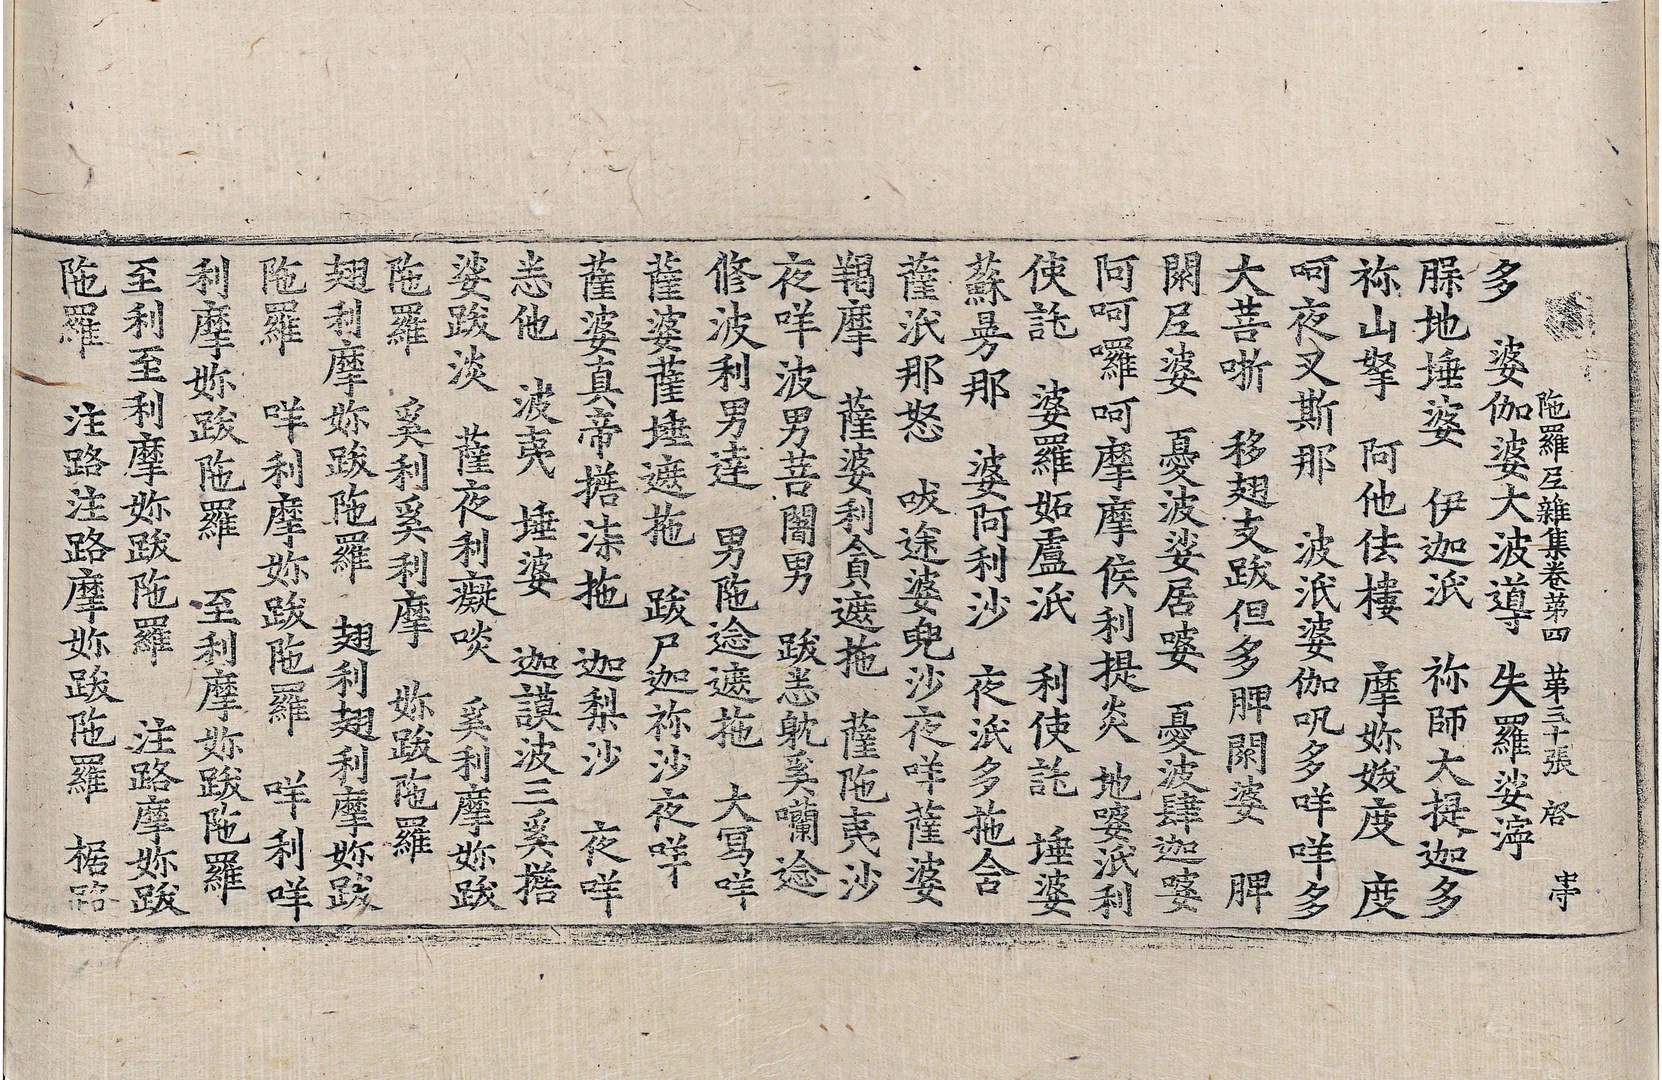 陁羅尼雜集卷第四 第三十張 啓
多 婆伽婆大波導 失羅娑濘
脲地埵婆 伊迦泜 祢師大提迦多
祢山拏 阿他佉樓 摩妳妭度 度
呵夜叉斯那 波泜婆伽㕧多咩咩多
大菩㗭 移翅支跋但多脾閦婆 脾
閦尼婆 憂波娑居婆 憂波肆迦婆
阿呵囉呵摩摩侯利提炎 地婆泜利
使訑 婆羅妬盧泜 利使訑 埵婆
蘇昮那 婆阿利沙 夜泜多拖含
薩泜那怒 呅途婆兜沙夜咩薩婆
羯摩 薩婆利貪遮拖 薩陁夷沙
夜咩波男菩闍男 跋恙躭奚囒逾
修波利男達 男陁逾遮拖 大冩咩
薩婆薩埵遮拖 跋尸迦祢沙夜咩
薩婆真帝㨋渿拖 迦梨沙 夜咩
恙他 波夷 埵婆 迦謨波三奚㨋
娑跋淡 薩夜利癡啖 奚利摩妳跋
陁羅 奚利奚利摩 妳跋陁羅
翅利摩妳跋陁羅 翅利翅利摩妳跋
陁羅 咩利摩妳跋陁羅 咩利咩
利摩妳跋陁羅 至利摩妳跋陁羅
至利至利摩妳跋陁羅 注路摩妳跋
陁羅 注路注路摩妳跋陁羅 椐路